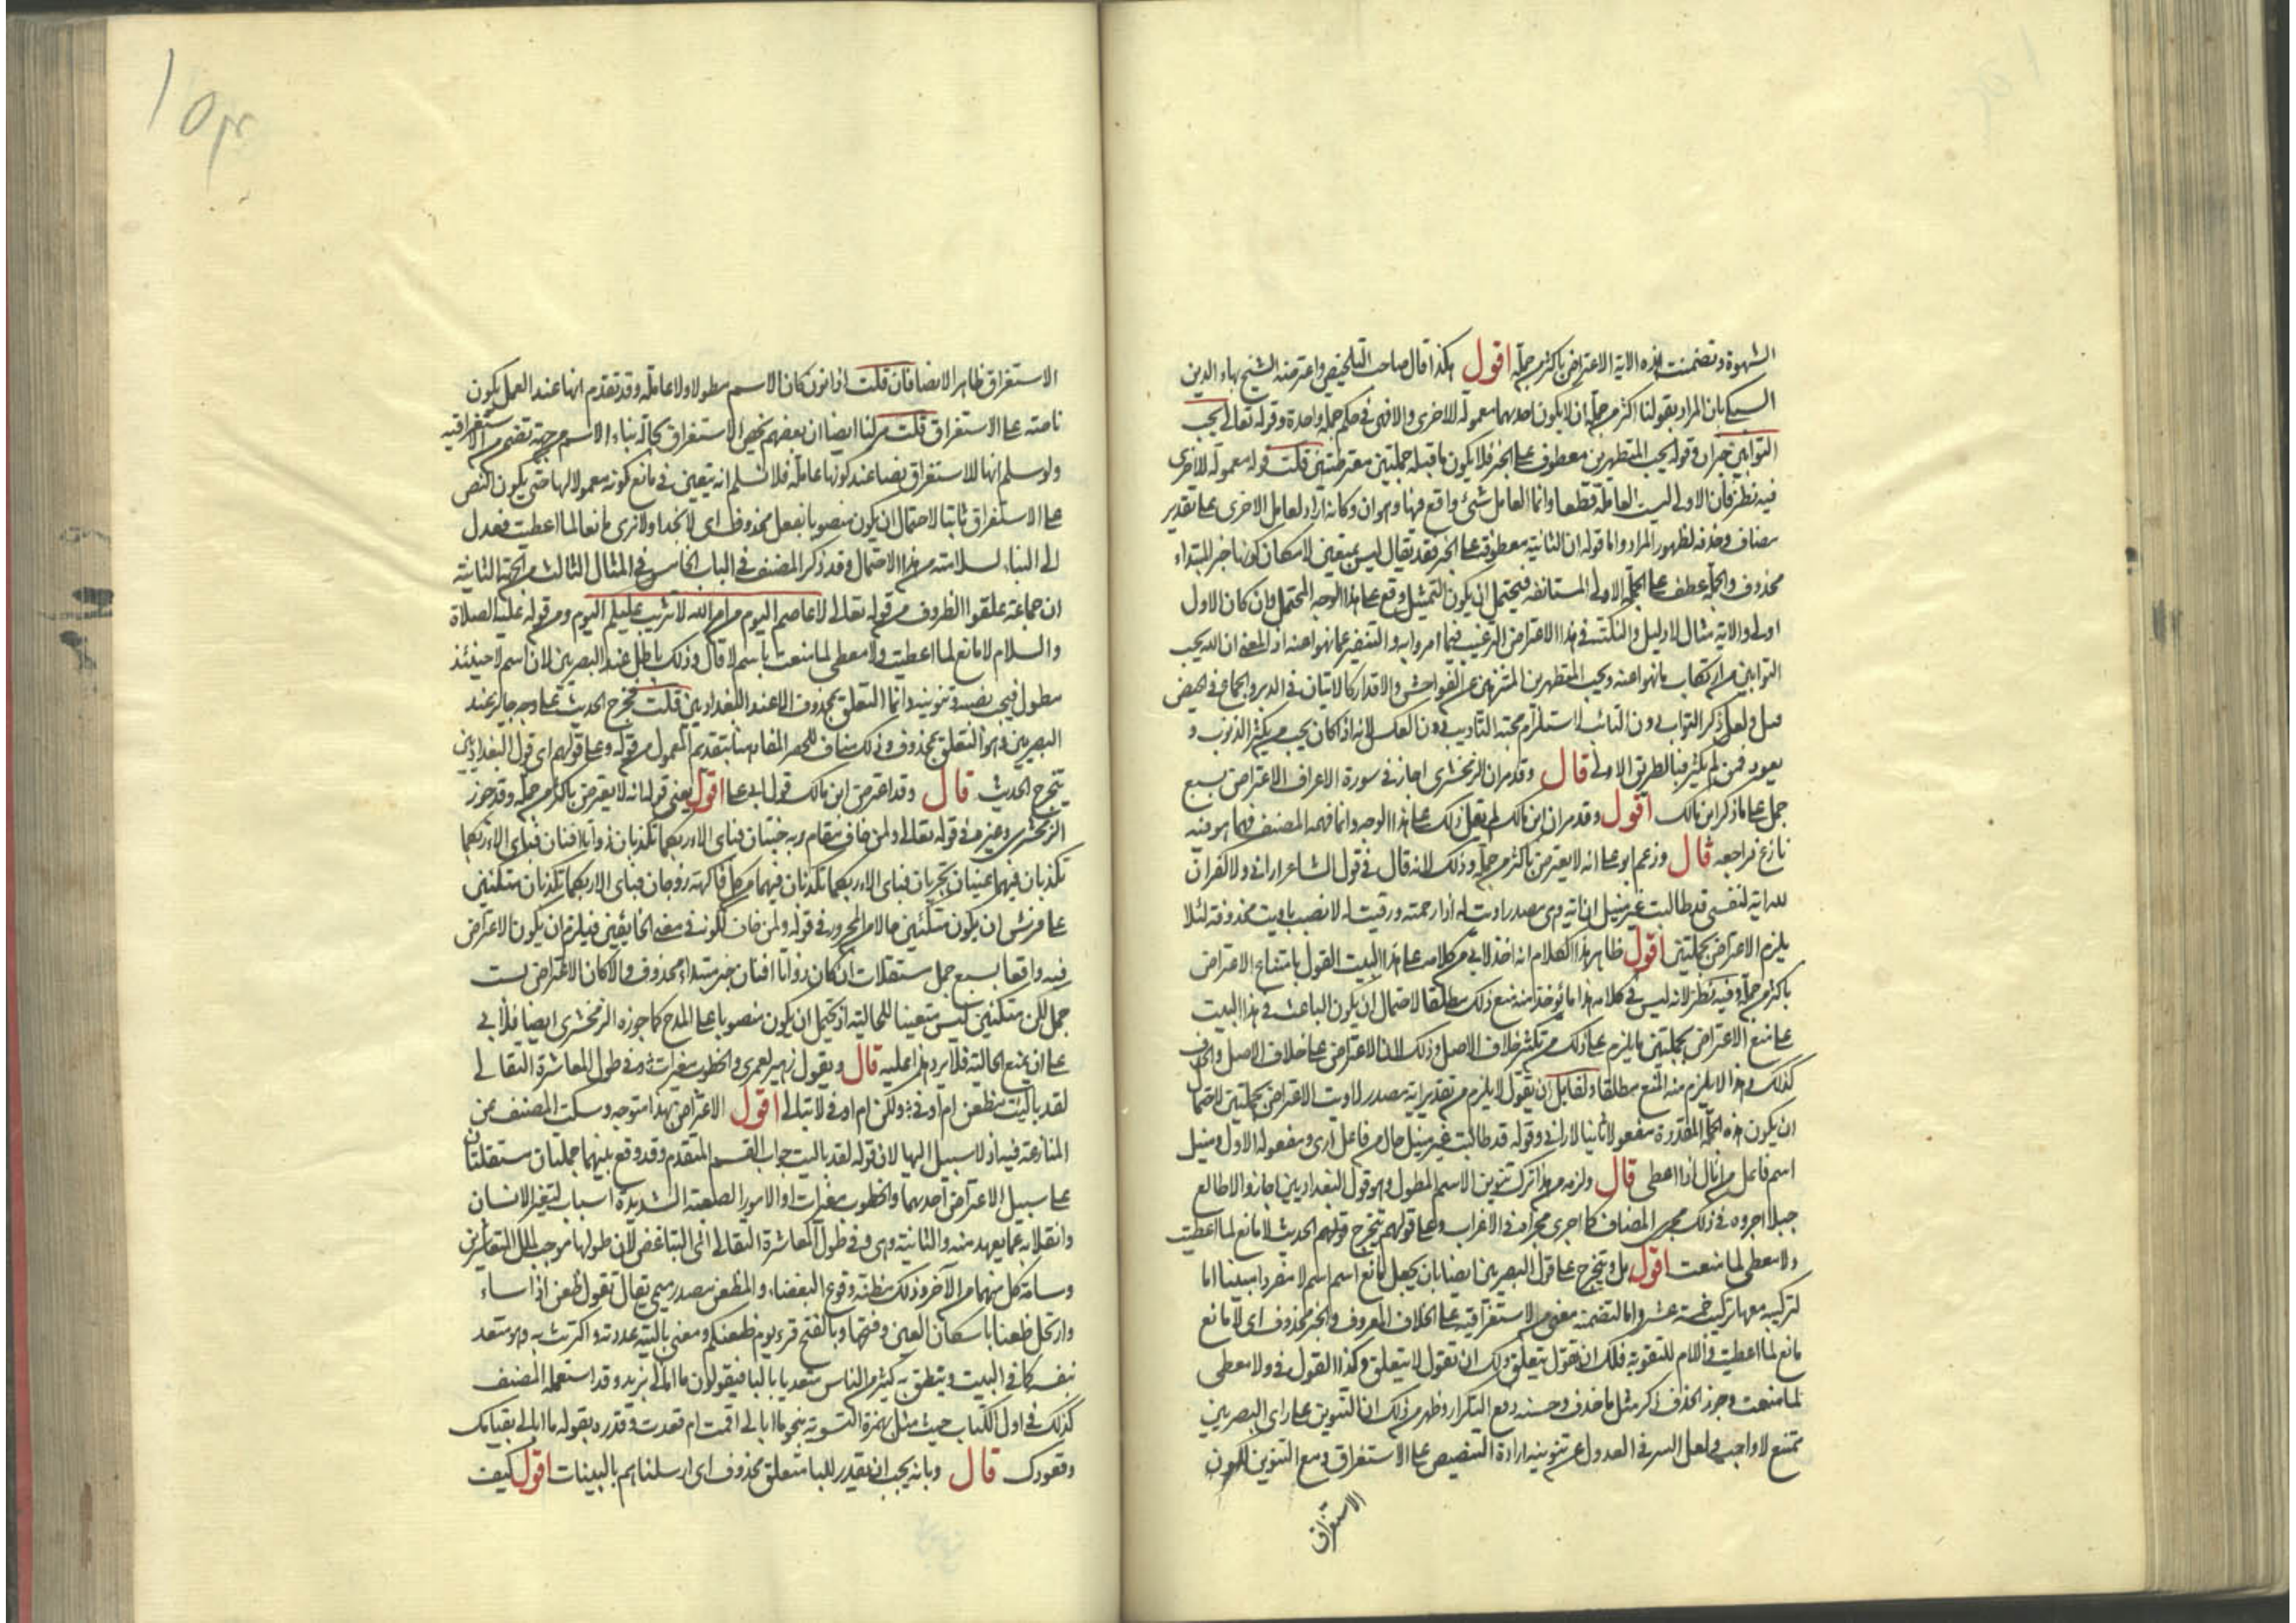 الشهوة وتضمنت هذه الاية الاعتراض باكثر من جملة اقول هكذا قال صاحب التلخيص واعترضه الشيخ بهاء الدين
السبكي بان المراد بقولنا اكثر من جملة ان لا يكون احديهما معمولة للاخرى والا فهى في حكم جملة واحدة وقوله تعالى يحب
التوابين خبر ان وقوله يحب المتطهرين معطوف على الخبر فلا يكون ما قبله جملتين معترضتين قلت قوله معمولة للاخرى
فيه نظر فان الاولى ليست العاملة قطعا وانما العامل شئ واقع فيها وهو ان وكانه اراد لعامل الاخرى على تقدير
مضاف وحذفه لظهور المراد واما قوله ان الثانية معطوفة على الخبر فقد يقال ليس بمتعين لامكان كونها خبر المبتداء
محذوف والجملة عطف على الجملة الاولى المستانفة فيحتمل ان يكون التمثيل وقع على هذا الوجه المحتمل وان كان الاول
اولى والاية مثال لا دليل والنكتة في هذا الاعتراض الترغيب فيما امروا به والتنفير عما نهوا عنه اذ المعنى ان الله يحب
التوابين من ارتكاب ما نهوا عنه ويحب المتطهرين المتنزهين عن الفواحش والاقذار كالاتيان في الدبر والجماع في الحيض
قيل ولعل ذكر التواب دون التائب استلزام محبة التاديب دون العكس لانه اذا كان يحب من يكثر الذنوب و
يعود فمن لم يكثر فبالطريق الاولى قال وقد مر ان الزمخشرى اجاز في سورة الاعراف الاعتراض بسبع
جمل على ما ذكر ابن مالك اقول وقد مر ان ابن مالك لم يقل ذلك على هذا الوجه وانما فهمه المصنف فهما هو فيه
نازع فراجعه قال وزعم ابو على انه لا يعترض باكثر من جملة وذلك لانه قال في قول الشاعر ارانى ولا كفران
لله اية لنفسى قد طالبت غير منيل ان اية وهى مصدر اويت له اذا رحمته ورقيت له لا نصب باويت محذوفة لئلا
يلزم الاعتراض بجملتين اقول ظاهر هذا الكلام انه اخذ لابي من كلامه على هذا البيت القول بامتناع الاعتراض
باكثر من جملة وفيه نظر لانه ليس في كلامه هذا ما يؤخذ منه منع ذلك مطلقا لاحتمال ان يكون الباعث في هذا البيت
على منع الاعتراض بجملتين ما يلزم على ذلك من تكثير خلاف الاصل وذلك لان الاعتراض على خلاف الاصل والحذف
كذلك في هذا لا يلزم منه المنع مطلقا ولقائل ان يقول لا يلزم من تقدير اية مصدر لاويت الاعتراض بجملتين لاحتمال
ان يكون هذه الجملة المقدرة مفعولا ثانيا لارانى وقوله قد طالبت غير منيل حال من فاعل ارى ومفعوله الاول ومنيل
اسم فاعل من انال اذا اعطى قال ولزمه من هذا ترك تنوين الاسم المطول وهو قول البغداديين اجازوا لا طالع
جبلا اجروه في ذلك مجرى المضاف كما اجرى مجراه في الاعراب وعلى قولهم يتخرج قولهم الحديث لا مانع لما اعطيت
ولا معطى لما منعت اقول بل ويتخرج على قول البصريين ايضا بان يجعل مانع اسم اسم لا مفردا مبينا اما
لتركيبه معها تركيب خمسة عشر واما لتضمنه معنى من الاستغراقية على الخلاف المعروف والخبر محذوف اى لا مانع
مانع لما اعطيت واللام للتقوية فلك ان تقول يتعلق ولك ان تقول لا يتعلق وكذا القول في ولا معطى
لما منعت وجوز الحذف ذكر مثل ما حذف وحسنه دفع التكرار وظهر من ذلك ان التنوين على راى البصريين
تمتنع لا واجب ولعل السر في العدول عن تنوينه ارادة التنصيص على الاستغراق ومع التنوين لكون
الاستغراق
الاستغراق ظاهرا لا نصا فان قلت اذا نون كان الاسم مطولا ولا عاملة وقد تقدم انها عند العمل يكون
ناصة على الاستغراق قلت مر لنا ايضا ان بعضهم يخص الاستغراق بحالة بناء الاسم من جهة تضمن من الاستغراقيه
ولو سلم انها للاستغراق نصا عند كونها عاملة فلا نسلم انه يتعين في مانع كونه معمولا لها حتى يكون النص
على الاستغراق ثابتا لاحتمال ان يكون منصوبا بفعل محذوف اى لا نجد او لا نرى مانعا لما اعطيت فعدل
الى البناء لسلامته من هذا الاحتمال وقد ذكر المصنف في الباب الخامس في المثال الثالث من الجهة الثانية
ان جماعة علقوا الظروف من قوله تعالى لا عاصم اليوم من امر الله لا تثريب عليكم اليوم ومن قوله عليه الصلاة
والسلام لا مانع لما اعطيت ولا معطى لما منعت باسم لا قال وذلك باطل عند البصريين لان اسم لا حينئذ
مطول فيجب نصبه وتنوينه وانما التعلق بمحذوف الا عند البغداديين قلت فخرج الحديث على وجه جائز عند
البصريين وهو التعلق بمحذوف وذلك مناف للحصر المفاد هنا بتقديم المعمول من قوله وعلى قولهم اى قول البغداديين
يتخرج الحديث قال وقد اعترض ابن مالك قول ابى على اقول يعنى قوله انه لا يعترض باكثر من جملة وقد جوز
الزمخشرى وغيره في قوله تعالى ولمن خاف مقام ربه جنتان فباى الاء ربكما تكذبان ذواتا افنان فباى الاء ربكما
تكذبان فيهما عينان تجريان فباى الاء ربكما تكذبان فيهما من كل فاكهة زوجان فباى الاء ربكما تكذبان متكئين
على فرش ان يكون متكئين حالا من المجرور في قوله ولمن خاف لكونه في معنى الخائفين فيلزم ان يكون الاعتراض
فيه واقعا بسبع جمل مستقلات ان كان ذواتا افنان خبر مبتداء محذوف والا كان الاعتراض بست
جمل لكن متكئين ليس متعينا للحالية اذ يحتمل ان يكون منصوبا على المدح كما جوزه الزمخشرى ايضا فلابى
على ان يمنع الحالية فلا يرد هذا عليه قال ويقول زهير لعمرى والخطوب مغيرات وفي طول المعاشرة التقالى
لقد باليت مظعن ام اوفى ولكن ام اوفى لا تبالى اقول الاعتراض بهذا متوجه وسكت المصنف عن
المنازعة فيه اذ لا سبيل اليها لان قوله لقد باليت جواب القسم المتقدم وقد وقع بينهما جملتان مستقلتان
على سبيل الاعتراض احديهما والخطوب مغيرات او الامور الصعبة الشديدة اسباب لتغير الانسان
وانقلابه عما يعهد منه والثانية وهى وفي طول المعاشرة التقالى اى التباغض لان طولها موجب لملل المتعاشرين
وسامة كل منهما من الآخر وذلك مظنة وقوع البغضاء والمظعن مصدر ميمى يقال تقول ظعن اذا ساء
وارتحل ظعنا باسكان العين وفتحها وبالفتح قرء يوم ظعنكم ومعنى باليته عددته واكترثت به وهو متعد
بنفسه كما في البيت وينطق به كثير من الناس متعديا بالبا فيقولون ما ابالى بزيد وقد استعمله المصنف
كذلك في اول الكتاب حيث مثل بهمزة التسوية بنحو ما ابالى اقمت ام قعدت وقدره بقوله ما ابالى بقيامك
وقعودك قال وبانه يجب ان يقدر للبا متعلق محذوف اى ارسلناهم بالبينات اقول كيف